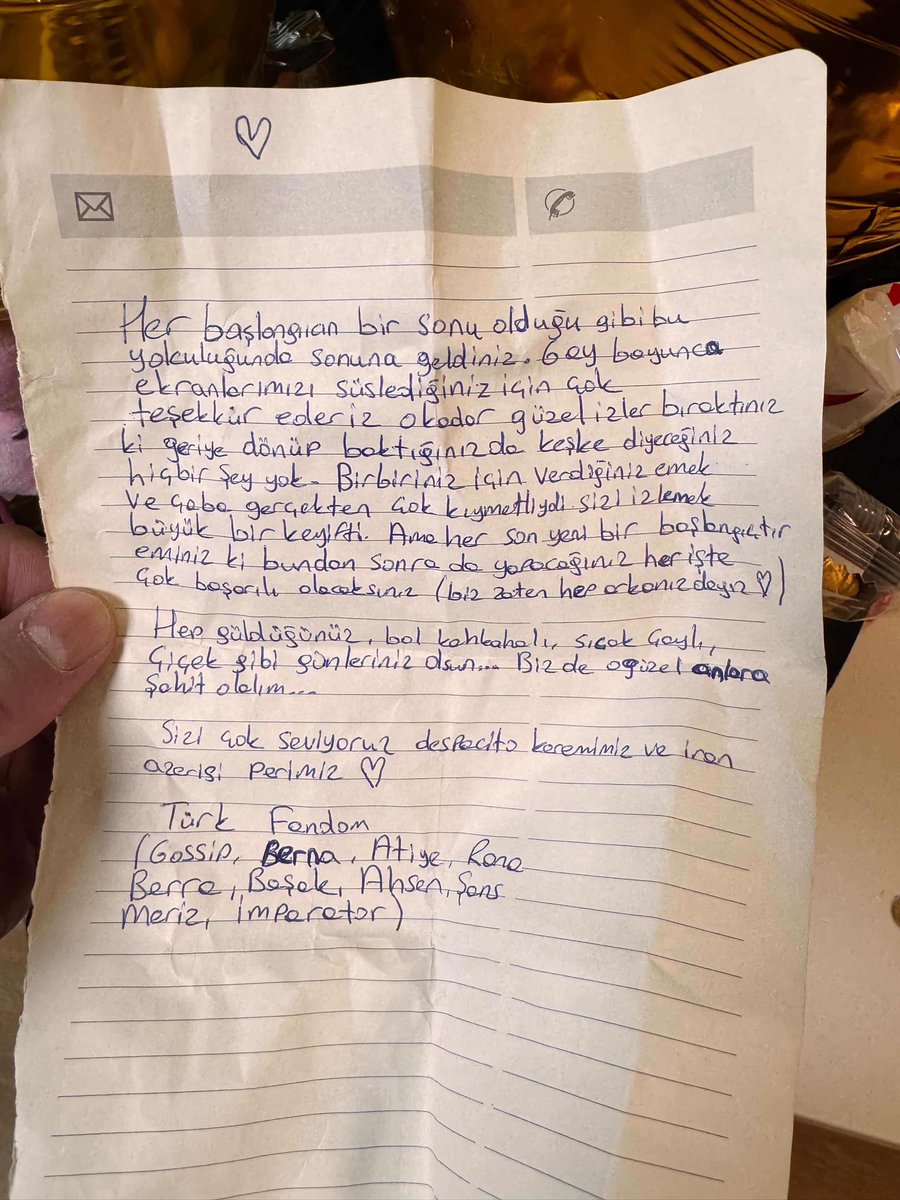 Her başlangıcın bir sonu olduğu gibi bu
yolculuğunda sonuna geldiniz. 6 ay boyunca
ekranlarımızı süslediğiniz için çok
teşekkür ederiz okadar güzel izler bıraktınız
ki geriye dönüp baktığınızda keşke diyeceğiniz
hiçbir şey yok. Birbiriniz için verdiğiniz emek
ve çaba gerçekten çok kıymetliydi sizi izlemek
büyük bir keyifti. Ama her son yeni bir başlangıçtır
eminiz ki bundan sonra da yapacağınız her işte
çok başarılı olacaksınız (biz zaten hep arkanızdayız ♡)
Hep güldüğünüz, bol kahkahalı, sıcak çaylı,
Çiçek gibi günleriniz olsun... Bizde o güzel anlara
şahit olalım...
Sizi çok seviyoruz despacito keremimiz ve iran
azerisi perimiz ♡
Türk Fandom
(Gossip, Berna, Atiye, Rana
Berra, Başak, Ahsen, Şans
Meriz, imparator)